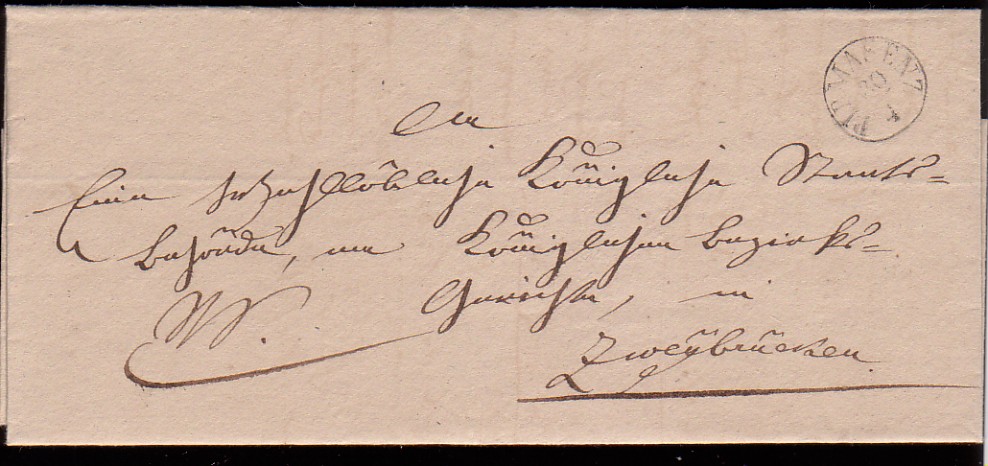 PIRMASENZ
20
4
An
Eine Hochlöbliche Königliche Staats=
behörde, am Königlichen Bezirks=
Gerichte, in
Zweÿbrücken